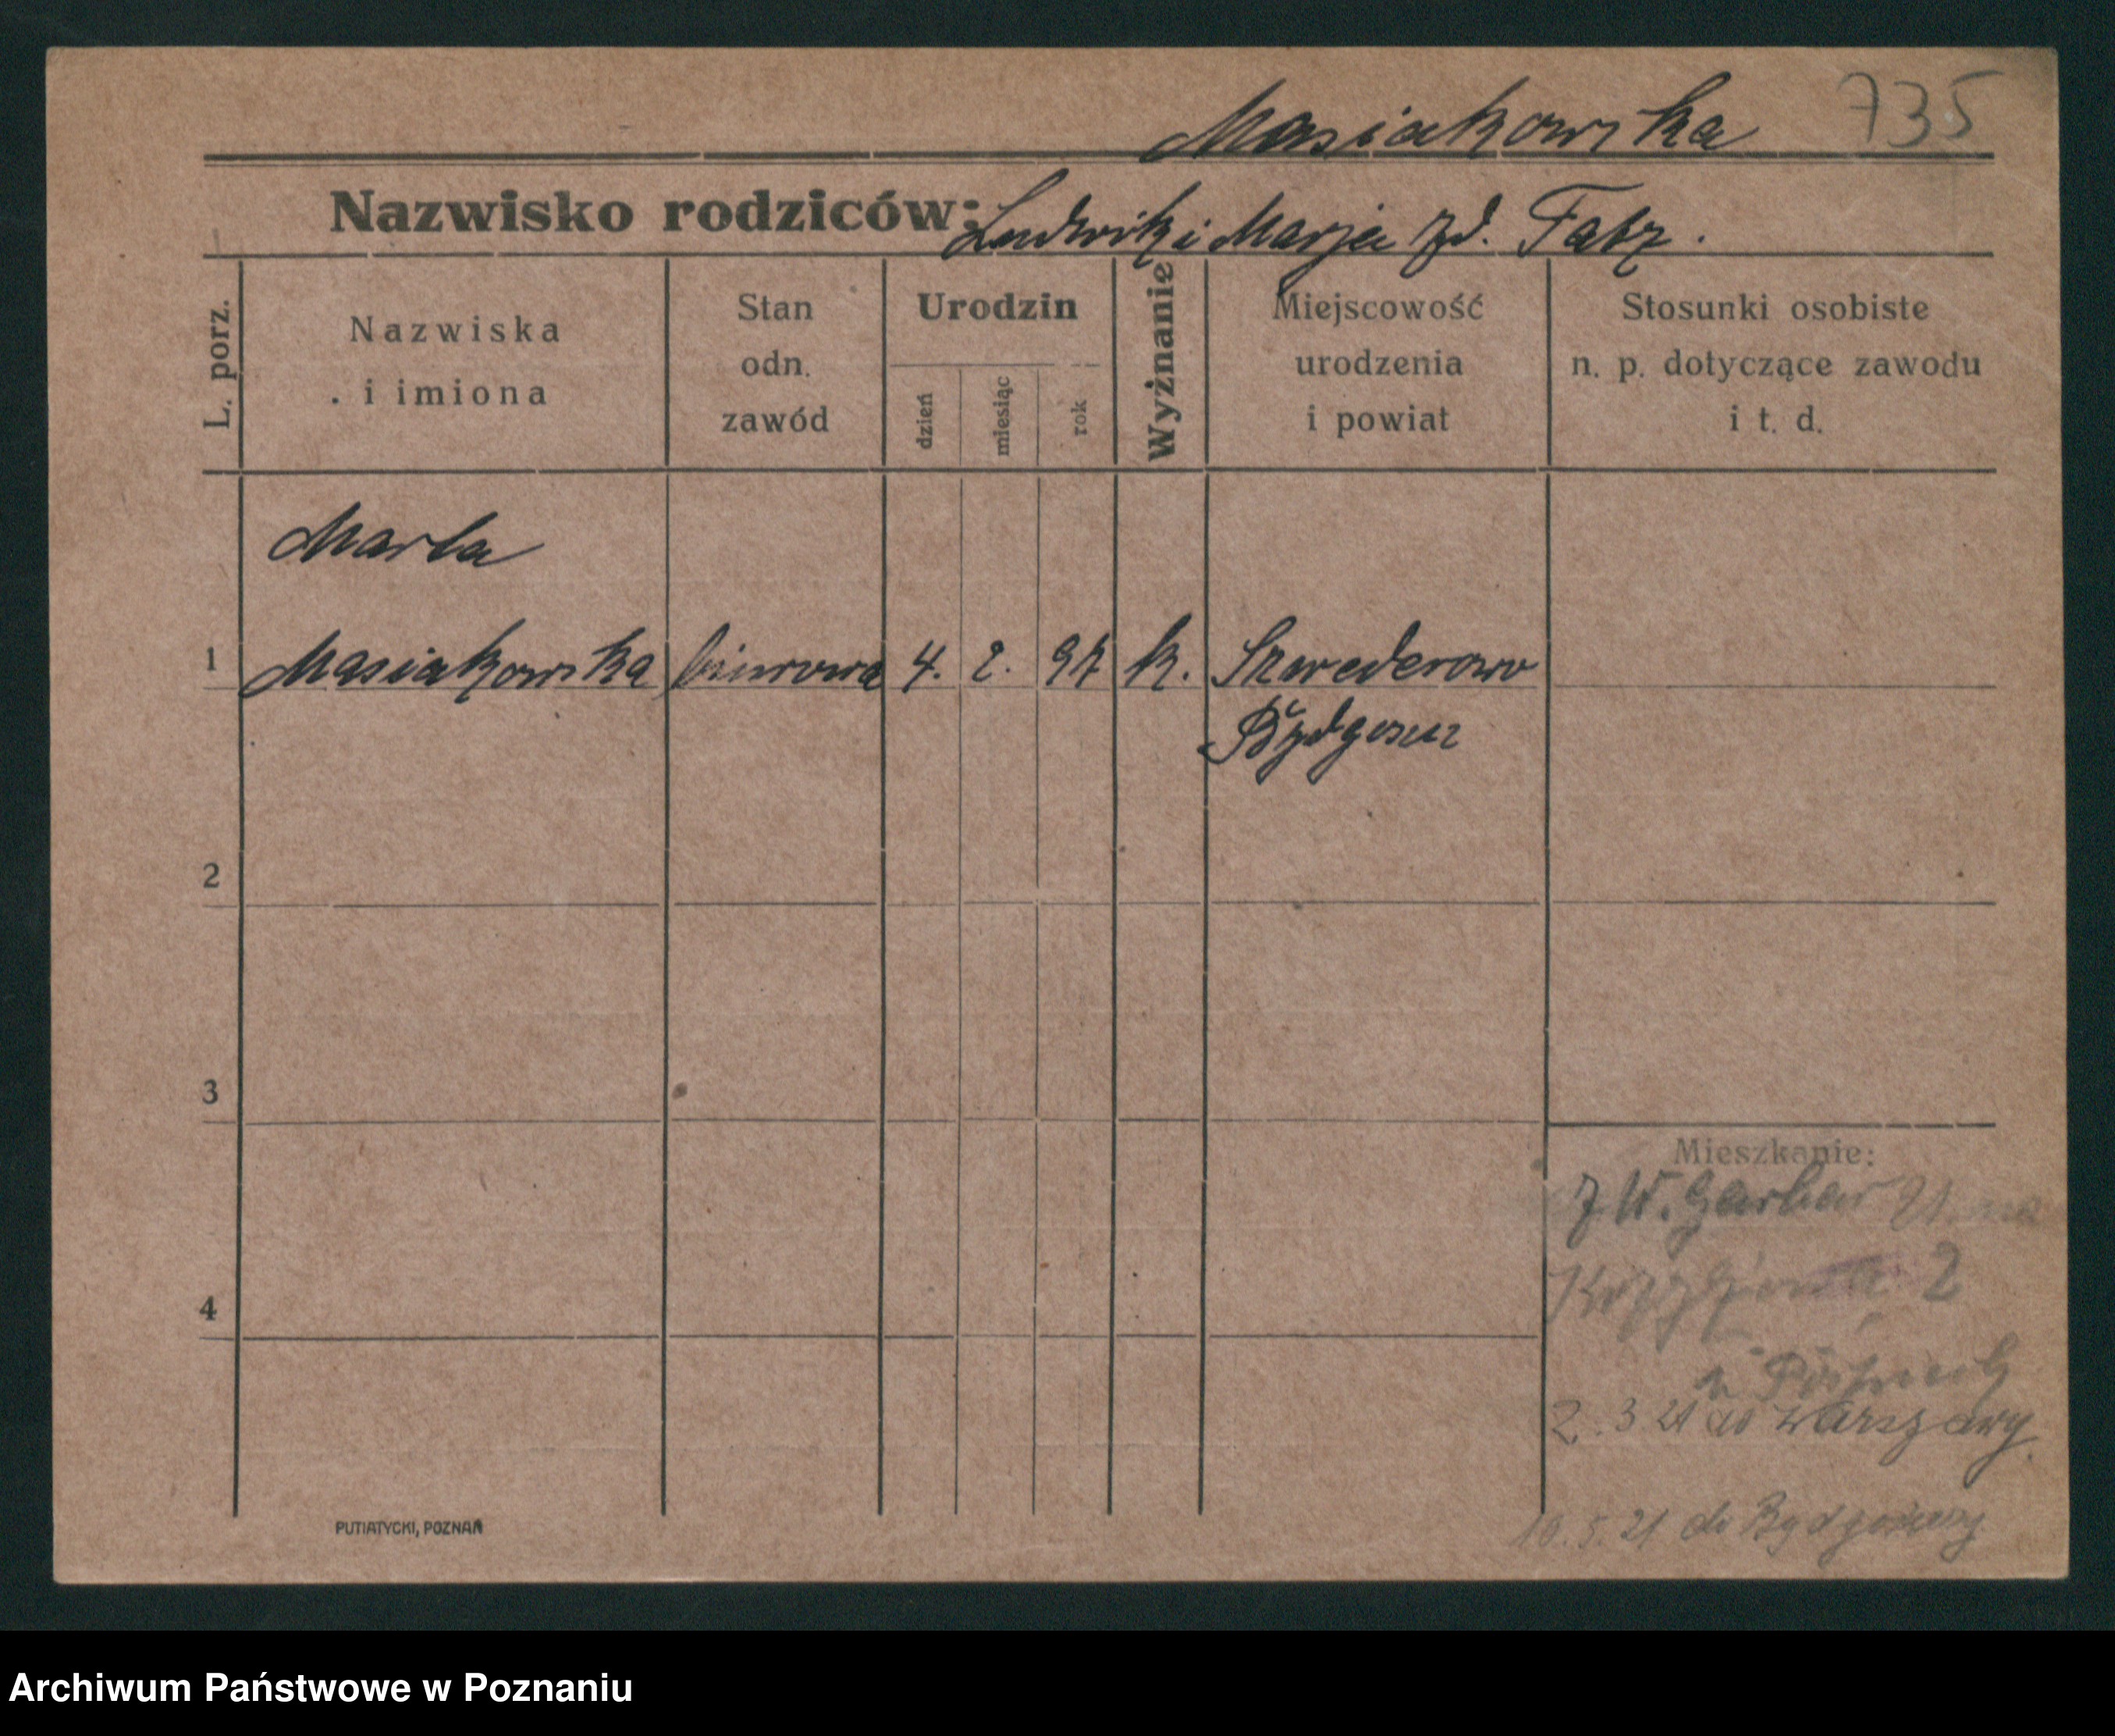 Masiakowska 735
Nazwisko rodziców: Ludwik i Marja zd.
L. porz.
Nazwiska
i imiona
Stan
odn.
zawód
Urodzin
dzień
miesiąc
rok
Wyżnanie
Miejscowość
urodzenia
i powiat
Stosunki osobiste
n. p. dotyczące zawodu
i t. d.
Marta
1 Masiakowska biurowa 4. 2. 97 k. Szwederowo
Bydgoszcz
2
3
4
Mieszkanie:
W. Garbar 21.
2
2. 3 21 do Warszawy.
10. 5. 21 do Bydgoszczy
PUTIATYCKI, POZNAŃ
Archiwum Państwowe w Poznaniu